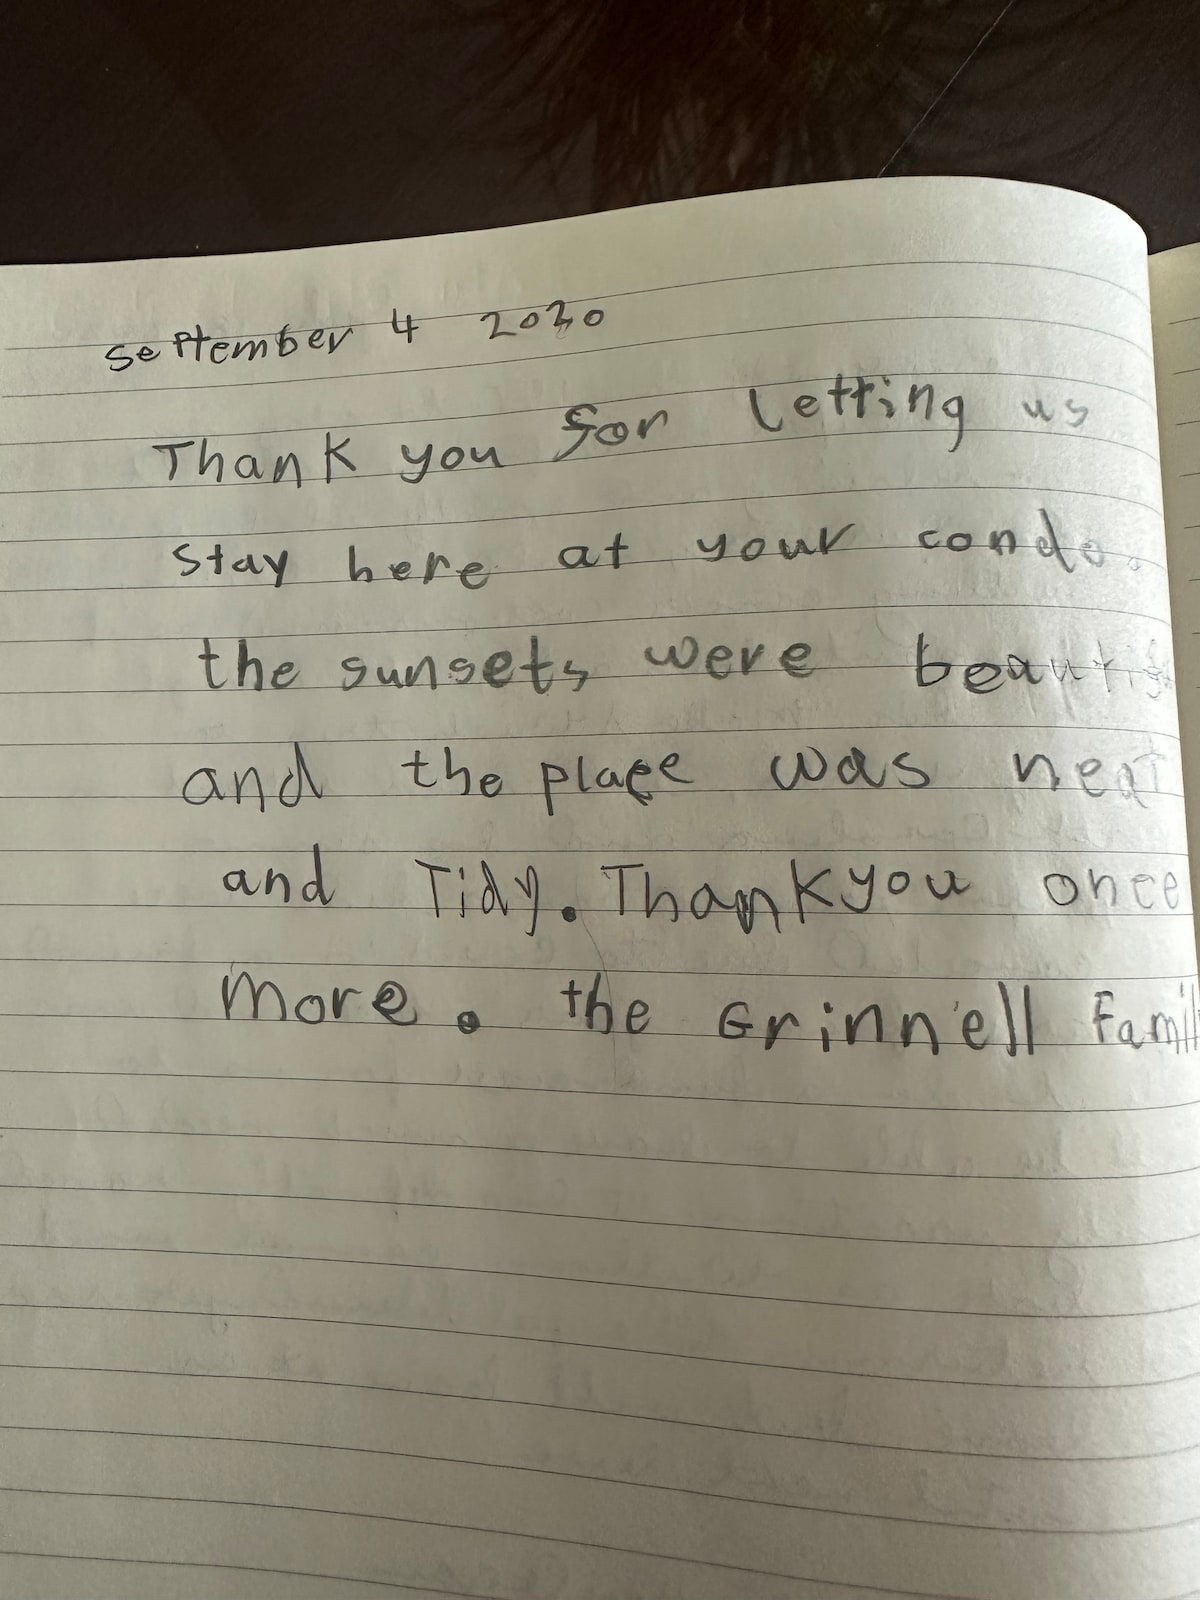 September 4 2020
Thank you for letting us
stay here at your condo.
the sunsets were beautif
and the place was neat
and Tidy. Thank you once
more. the Grinnell Famil